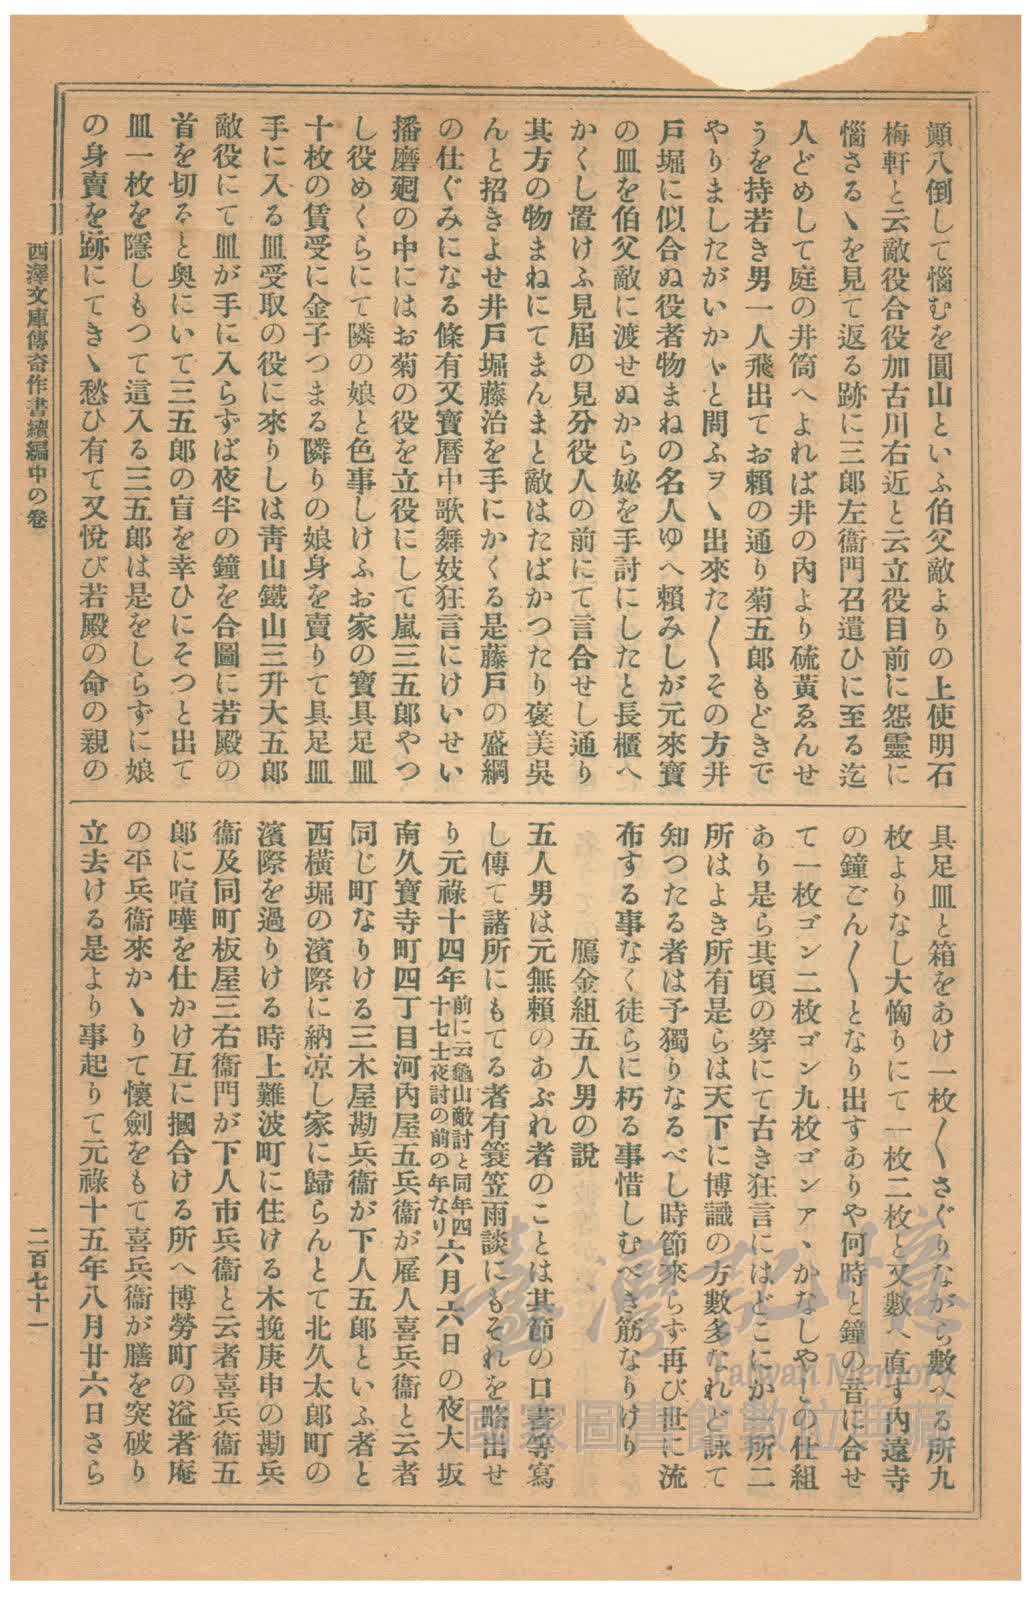 顚八倒して惱むを圓山といふ伯父敵よりの上使明石
梅軒と云敵役合役加古川右近と云立役目前に怨靈に
惱さるゝを見て返る跡に三郎左衞門召遣ひに至る迄
人どめして庭の井筒へよれば井の内より硫黃ゑんせ
うを持若き男一人飛出てお賴の通り菊五郎もどきで
やりましたがいかゞと問ふヲヽ出來た〳〵その方井
戸堀に似合ぬ役者物まねの名人ゆへ賴みしが元來寶
の皿を伯父敵に渡せぬから妼を手討にしたと長櫃へ
かくし置けふ見屆の見分役人の前にて言合せし通り
其方の物まねにてまんまと敵はたばかつたり褒美吳
んと招きよせ井戸堀藤治を手にかくる是藤戸の盛綱
の仕ぐみになる條有又寶曆中歌舞妓狂言にけいせい
播磨廻の中にはお菊の役を立役にして嵐三五郎やつ
し役めくらにて隣の娘と色事しけふお家の寶具足皿
十枚の賃受に金子つまる隣りの娘身を賣りて具足皿
手に入る皿受取の役に來りしは靑山鐵山三升大五郎
敵役にて皿が手に入らずば夜半の鐘を合圖に若殿の
首を切ると奧にいて三五郎の盲を幸ひにそつと出て
皿一枚を隱しもつて這入る三五郎は是をしらずに娘
の身賣を跡にてきゝ愁ひ有て又悅び若殿の命の親の
具足皿と箱をあけ一枚〳〵さぐりながら數へる所九
枚よりなし大恟りにて一枚二枚と又數へ直す内遠寺
の鐘ごん〳〵となり出すありや何時と鐘の音に合せ
て一枚ゴン二枚ゴン九枚ゴンアヽかなしやとの仕組
あり是ら其頃の穿にて古き狂言にはどこにか一所二
所はよき所有是らは天下に博識の方數多なれど詠て
知つたる者は予獨りなるべし時節來らず再び世に流
布する事なく徒らに朽る事惜しむべき筋なりけり
鴈金組五人男の說
五人男は元無賴のあぶれ者のことは其節の口書等寫
し傳て諸所にもてる者有簑笠雨談にもそれを略出せ
り元祿十四年前に云龜山敵討と同年四十七士夜討の前の年なり六月六日の夜大坂
南久寶寺町四丁目河內屋五兵衞が雇人喜兵衞と云者
同じ町なりける三木屋勘兵衞が下人五郎といふ者と
西橫堀の濱際に納凉し家に歸らんとて北久太郎町の
濱際を過りける時上難波町に住ける木挽庚申の勘兵
衞及同町板屋三右衞門が下人市兵衞と云者喜兵衞五
郎に喧嘩を仕かけ互に摑合ける所へ博勞町の溢者庵
の平兵衞來かゝりて懷劍をもて喜兵衞が膳を突破り
立去ける是より事起りて元祿十五年八月廿六日さら
西澤文庫傳奇作書續編中の卷
二百七十一
臺灣記憶
Taiwan Memory
國家圖書館數位典藏